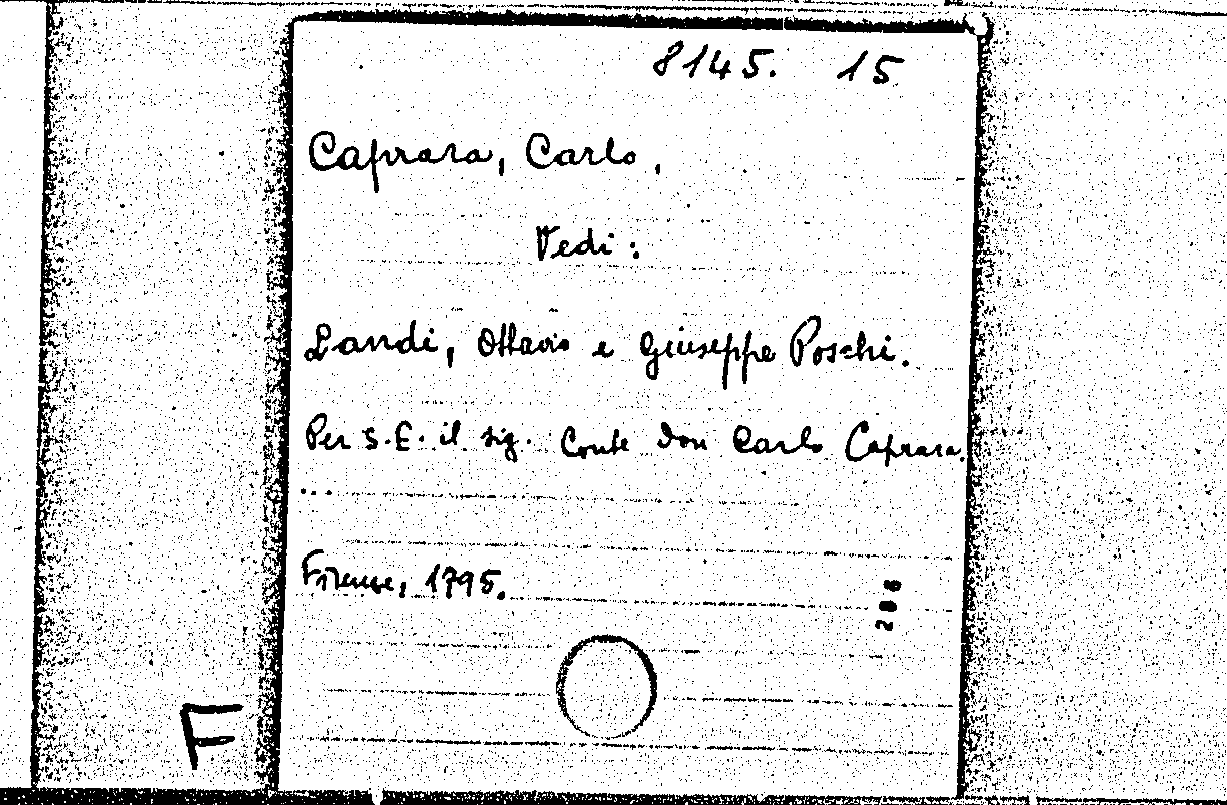 8145. 15
Caprara, Carlo.
Vedi:
Landi, Ottavio e Giuseppe Poschi.
Per S.E. il sig. Conte Don Carlo Caprara.
...
Firenze, 1795.
206
F